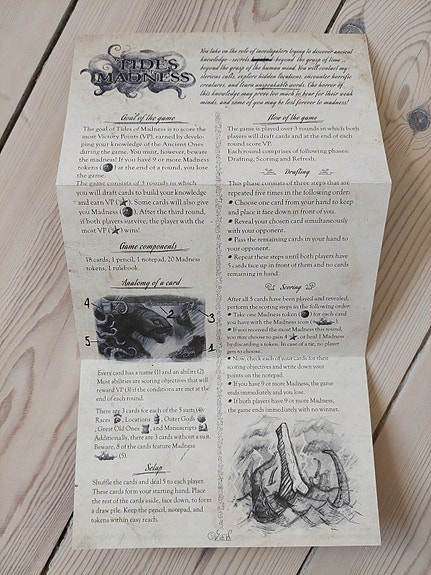 TIDES
OF
MADNESS
You take on the role of investigators trying to discover ancient
knowledge - secrets beyond the grasp of time
beyond the grasp of the human mind. You will contact my
sterious cults, explore hidden locations, encounter horrific
creatures, and learn unspeakable words. The horror of
this knowledge may prove too much to bear for their weak
minds, and some of you may be lost forever to madness!
Goal of the game
The goal of Tides of Madness is to score the
most Victory Points (VP), earned by develo-
ping your knowledge of the Ancient Ones
during the game. You must, however, beware
the madness! If you have 9 or more Madness
tokens ( ) at the end of a round, you lose
the game.
The game consists of 3 rounds in which
you will draft cards to build your knowledge
and earn VP ( ). Some cards will also give
you Madness ( ). After the third round,
if both players survive, the player with the
most VP ( ) wins!
Game components
18 cards, 1 pencil, 1 notepad, 20 Madness
tokens, 1 rulebook.
Anatomy of a card
4
2
3
5
1
Every card has a name (1) and an ability (2).
Most abilities are scoring objectives that will
reward VP (3) if the conditions are met at the
end of each round.
There are 3 cards for each of the 5 suits (4):
Races , Locations , Outer Gods
, Great Old Ones , and Manuscripts .
Additionally, there are 3 cards without a suit.
Beware, 8 of the cards feature Madness
(5).
Setup
Shuffle the cards and deal 5 to each player.
These cards form your starting hand. Place
the rest of the cards aside, face down, to form
a draw pile. Keep the pencil, notepad, and
tokens within easy reach.
Flow of the game
The game is played over 3 rounds in which both
players will draft cards and at the end of each
round score VP.
Each round comprises of following phases:
Drafting, Scoring and Refresh.
Drafting
This phase consists of three steps that are
repeated five times in the following order:
• Choose one card from your hand to keep
and place it face down in front of you.
• Reveal your chosen card simultaneously
with your opponent.
• Pass the remaining cards in your hand to
your opponent.
• Repeat these steps until both players have
5 cards face up in front of them and no cards
remaining in hand.
Scoring
After all 5 cards have been played and revealed,
perform the scoring steps in the following order:
• Take one Madness token ( ) for each card
you have with the Madness icon ( ).
• If you received the most Madness this round,
you may choose to gain 4 , or heal 1 Madness
by discarding a token. In case of a tie, no player
gets to choose.
• Now, check each of your cards for their
scoring objectives and write down your
points on the notepad.
• If you have 9 or more Madness, the game
ends immediately and you lose.
• If both players have 9 or more Madness,
the game ends immediately with no winner.